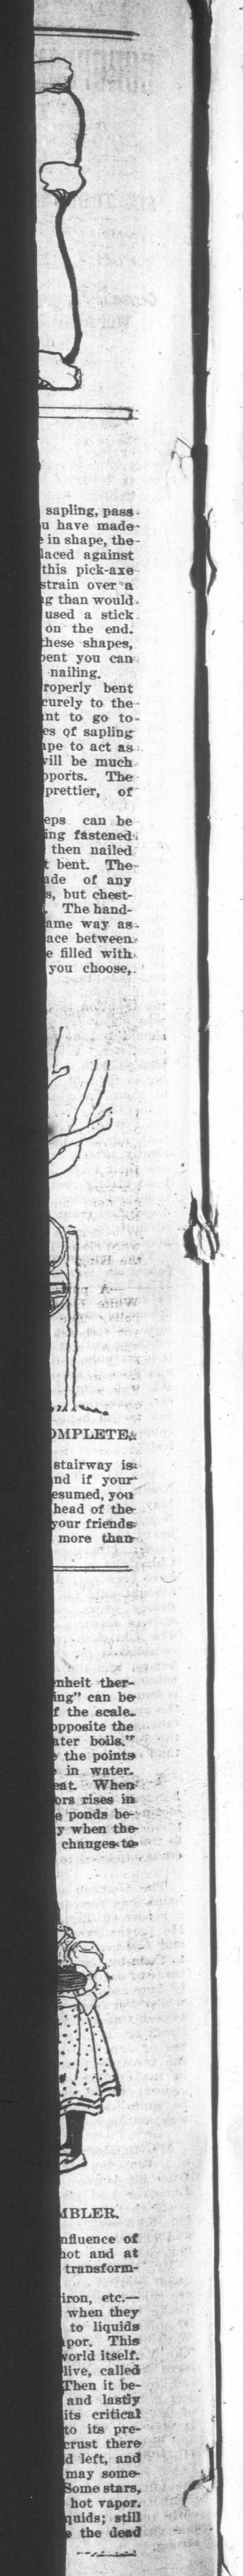 sapling, pass-
u have made
in shape, the
laced against
this pick-axe
strain over a
g than would
used a stick
on the end.
these shapes,
ent you can
nailing.
roperly bent
curely to the
nt to go to-
es of sapling
pe to act as
will be much
ports. The
prettier, of
eps can be
ing fastened
then nailed
t bent. The
ade of any
s, but chest-
. The hand-
ame way as
ace between
e filled with
you choose,
OMPLETE.
stairway is
nd if your
esumed, you
head of the
your friends
more than
nheit ther-
ing" can be
f the scale.
opposite the
ater boils."
the points
in water.
eat. When
ors rises in
e ponds be-
y when the
changes to
MBLER.
nfluence of
hot and at
transform-
iron, etc.—
when they
to liquids
por. This
world itself.
live, called
Then it be-
and lastly
its critical
to its pre-
crust there
d left, and
may some-
Some stars,
hot vapor.
quids; still
the dead